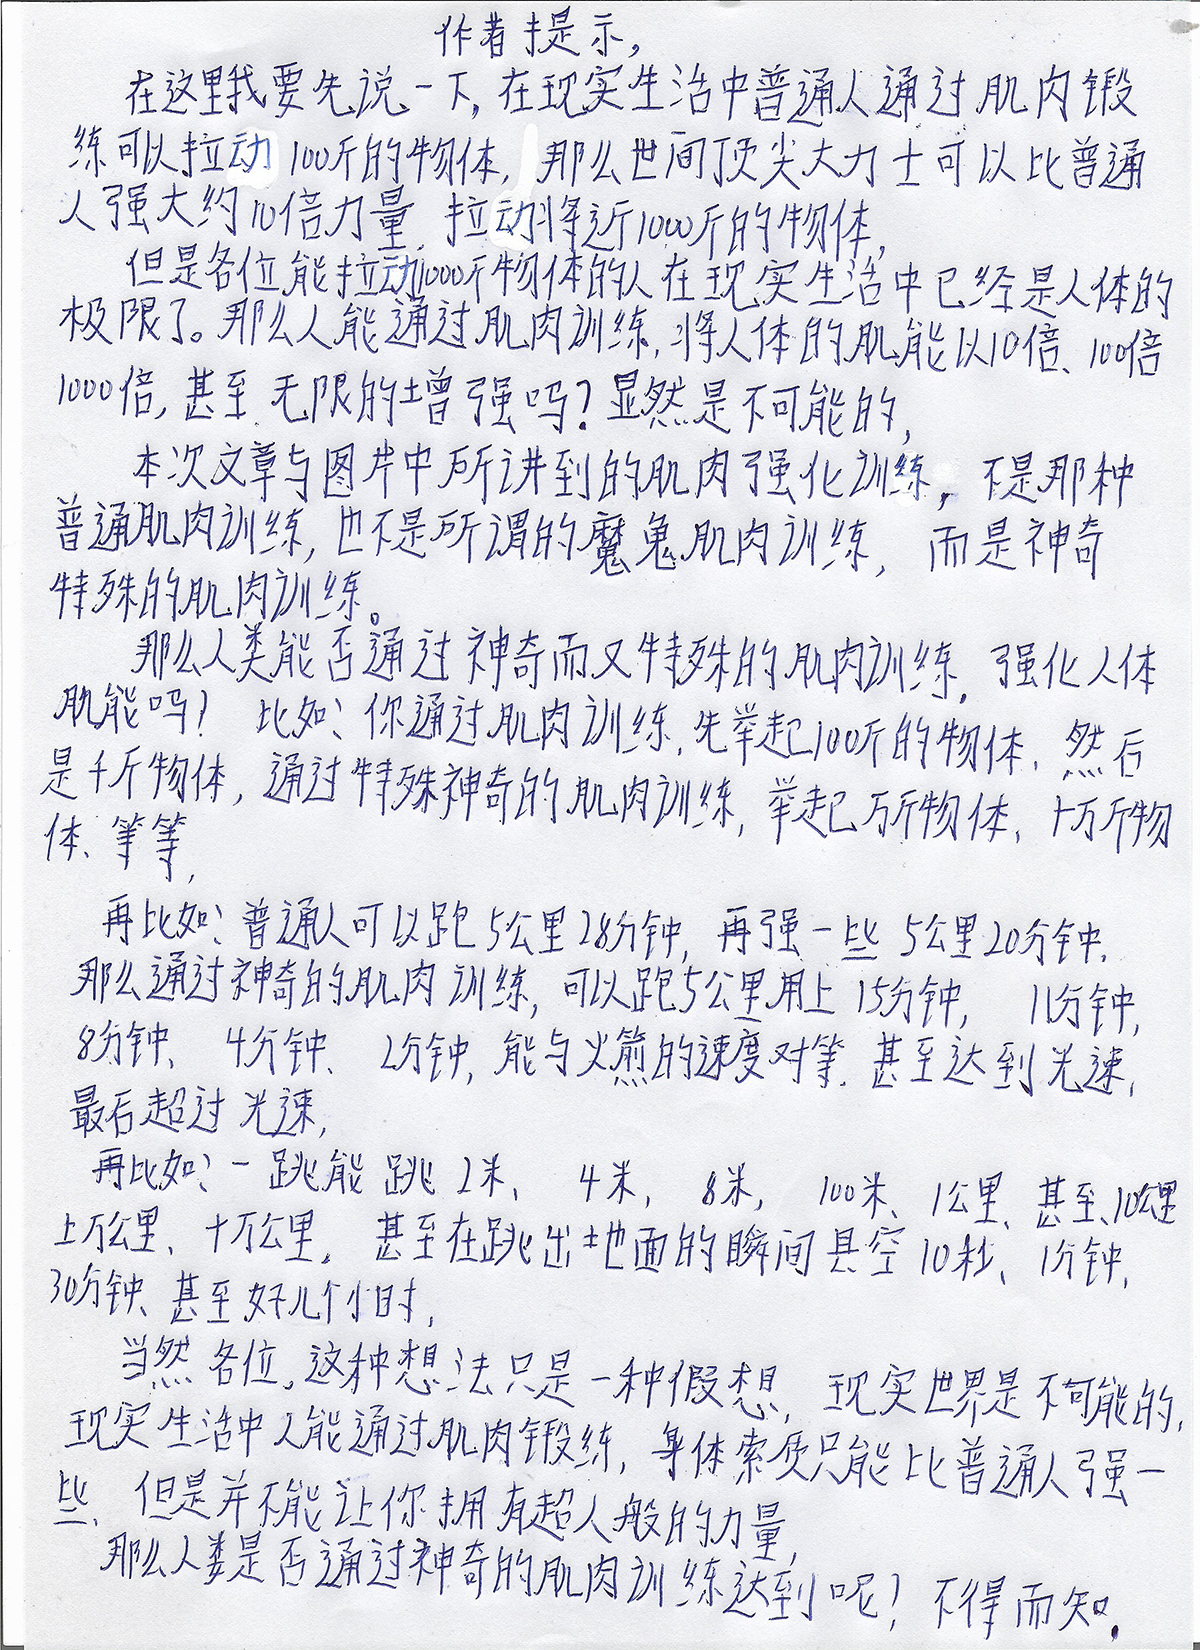 作者提示，
在这里我要先说一下，在现实生活中普通人通过肌肉锻
练可以拉动100斤的物体，那么世间顶尖大力士可以比普通
人强大约10倍力量，拉动将近1000斤的物体，
但是各位能拉动1000斤物体的人在现实生活中已经是人体的
极限了。那么人能通过肌肉训练，将人体的肌能以10倍、100倍
1000倍，甚至无限的增强吗？显然是不可能的，
本次文章与图片中所讲到的肌肉强化训练，不是那种
普通肌肉训练，也不是所谓的魔鬼肌肉训练，而是神奇
特殊的肌肉训练。
那么人类能否通过神奇而又特殊的肌肉训练，强化人体
肌能吗？比如：你通过肌肉训练，先举起100斤的物体、然后
是千斤物体，通过特殊神奇的肌肉训练，举起万斤物体、十万斤物
体、等等，
再比如：普通人可以跑5公里28分钟，再强一些5公里20分钟，
那么通过神奇的肌肉训练，可以跑5公里用上15分钟，11分钟，
8分钟、4分钟、2分钟，能与火箭的速度对等，甚至达到光速，
最后超过光速，
再比如：一跳能跳2米、4米，8米，100米、1公里、甚至、10公里
上万公里、十万公里，甚至在跳出地面的瞬间悬空10秒、1分钟，
30分钟、甚至好几个小时，
当然各位，这种想法只是一种假想，现实世界是不可能的，
现实生活中人能通过肌肉锻练，身体素质只能比普通人强一
些、但是并不能让你拥有超人般的力量，
那么人类是否通过神奇的肌肉训练达到呢？不得而知，